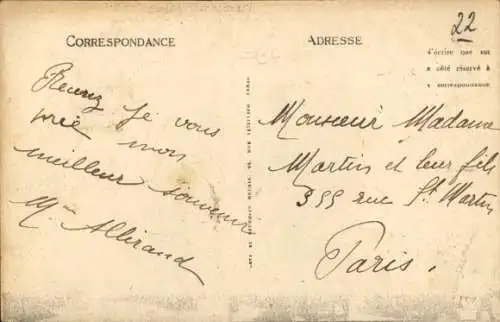 22
CORRESPONDANCE
ADRESSE
d'écrire que sur
e côté réservé à
a correspondance
Recevez je vous
prie mon
meilleur souvenir
Mme Alliraud
Monsieur Madame
Martin et leur fils
355 rue St Martin
Paris.